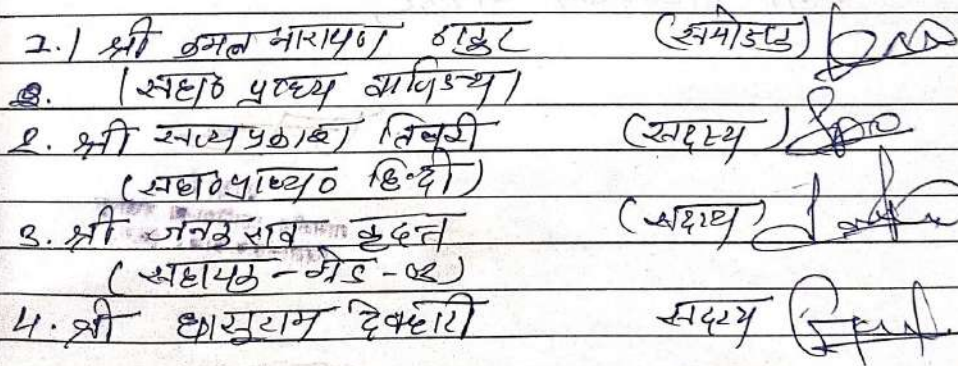 1. श्री कमल नारायण ठाकुर (संयोजक)
(सहा० प्राध्य वाणिज्य)
2. श्री सत्यप्रकाश तिवारी (सदस्य)
(सहा० प्राध्या० हिन्दी)
3. श्री जनक राव कुदन्त (सदस्य)
(सहायक - ग्रेड - 02)
4. श्री घासुराम देवहारी सदस्य